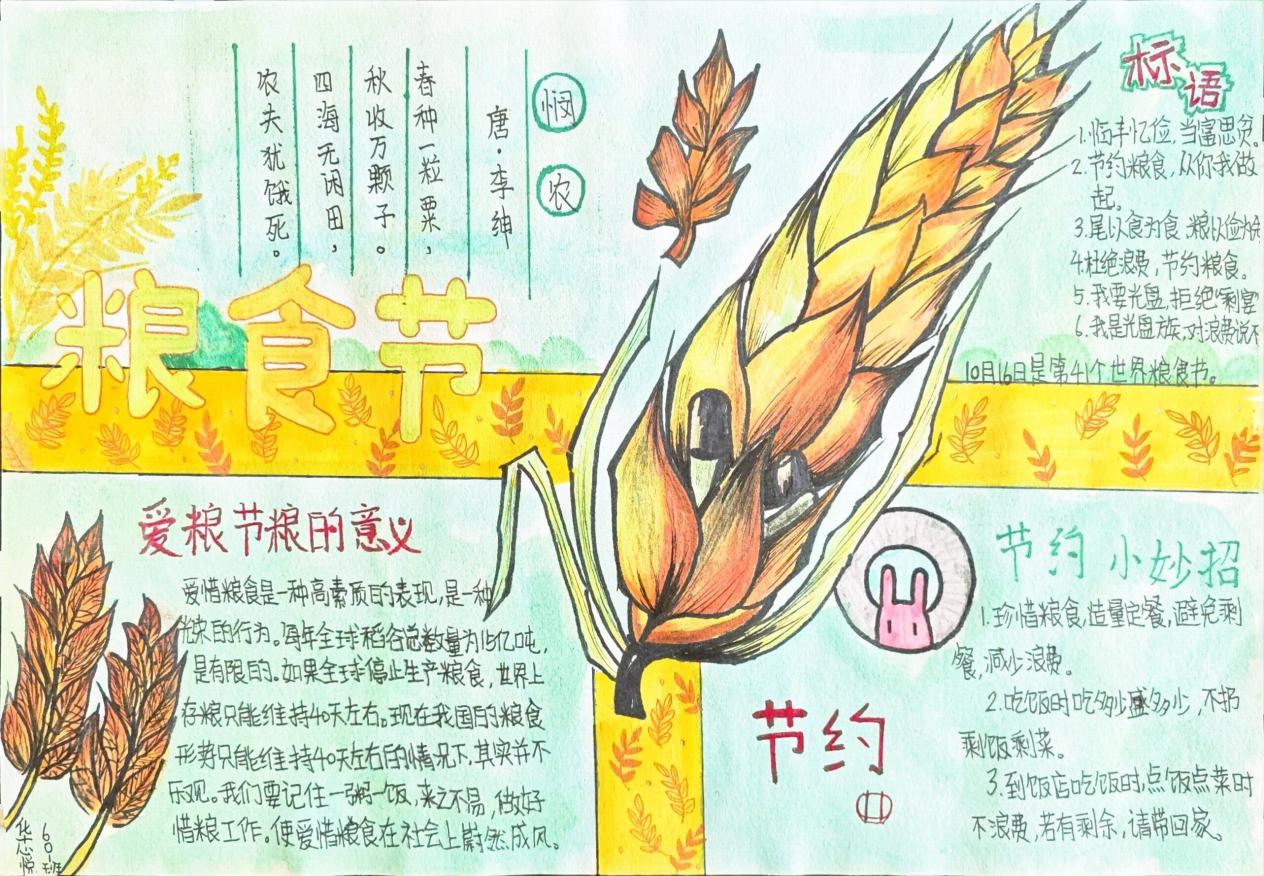 悯
农
唐·李绅
春种一粒粟，
秋收万颗子。
四海无闲田，
农夫犹饿死。
粮食节
标语
1.临丰忆俭，当富思贫。
2.节约粮食，从你我做
起。
3.尾以食为食，粮以俭为
4.杜绝浪费，节约粮食。
5.我要光盘，拒绝“剩宴”
6.我是光盘族，对浪费说不
10月16日是第41个世界粮食节。
爱粮节粮的意义
爱惜粮食是一种高素质的表现，是一种
光荣的行为。每年全球稻谷总数量为15亿吨，
是有限的。如果全球停止生产粮食，世界上
存粮只能维持40天左右。现在我国的粮食
形势只能维持40天左右的情况下，其实并不
乐观。我们要记住一粥一饭，来之不易，做好
惜粮工作。使爱惜粮食在社会上蔚然成风。
节约
节约小妙招
1.珍惜粮食，造量定餐，避免剩
餐，减少浪费。
2.吃饭时吃多少盛多少，不扔
剩饭剩菜。
3.到饭店吃饭时，点饭点菜时
不浪费，若有剩余，请带回家。
601班
华心悦